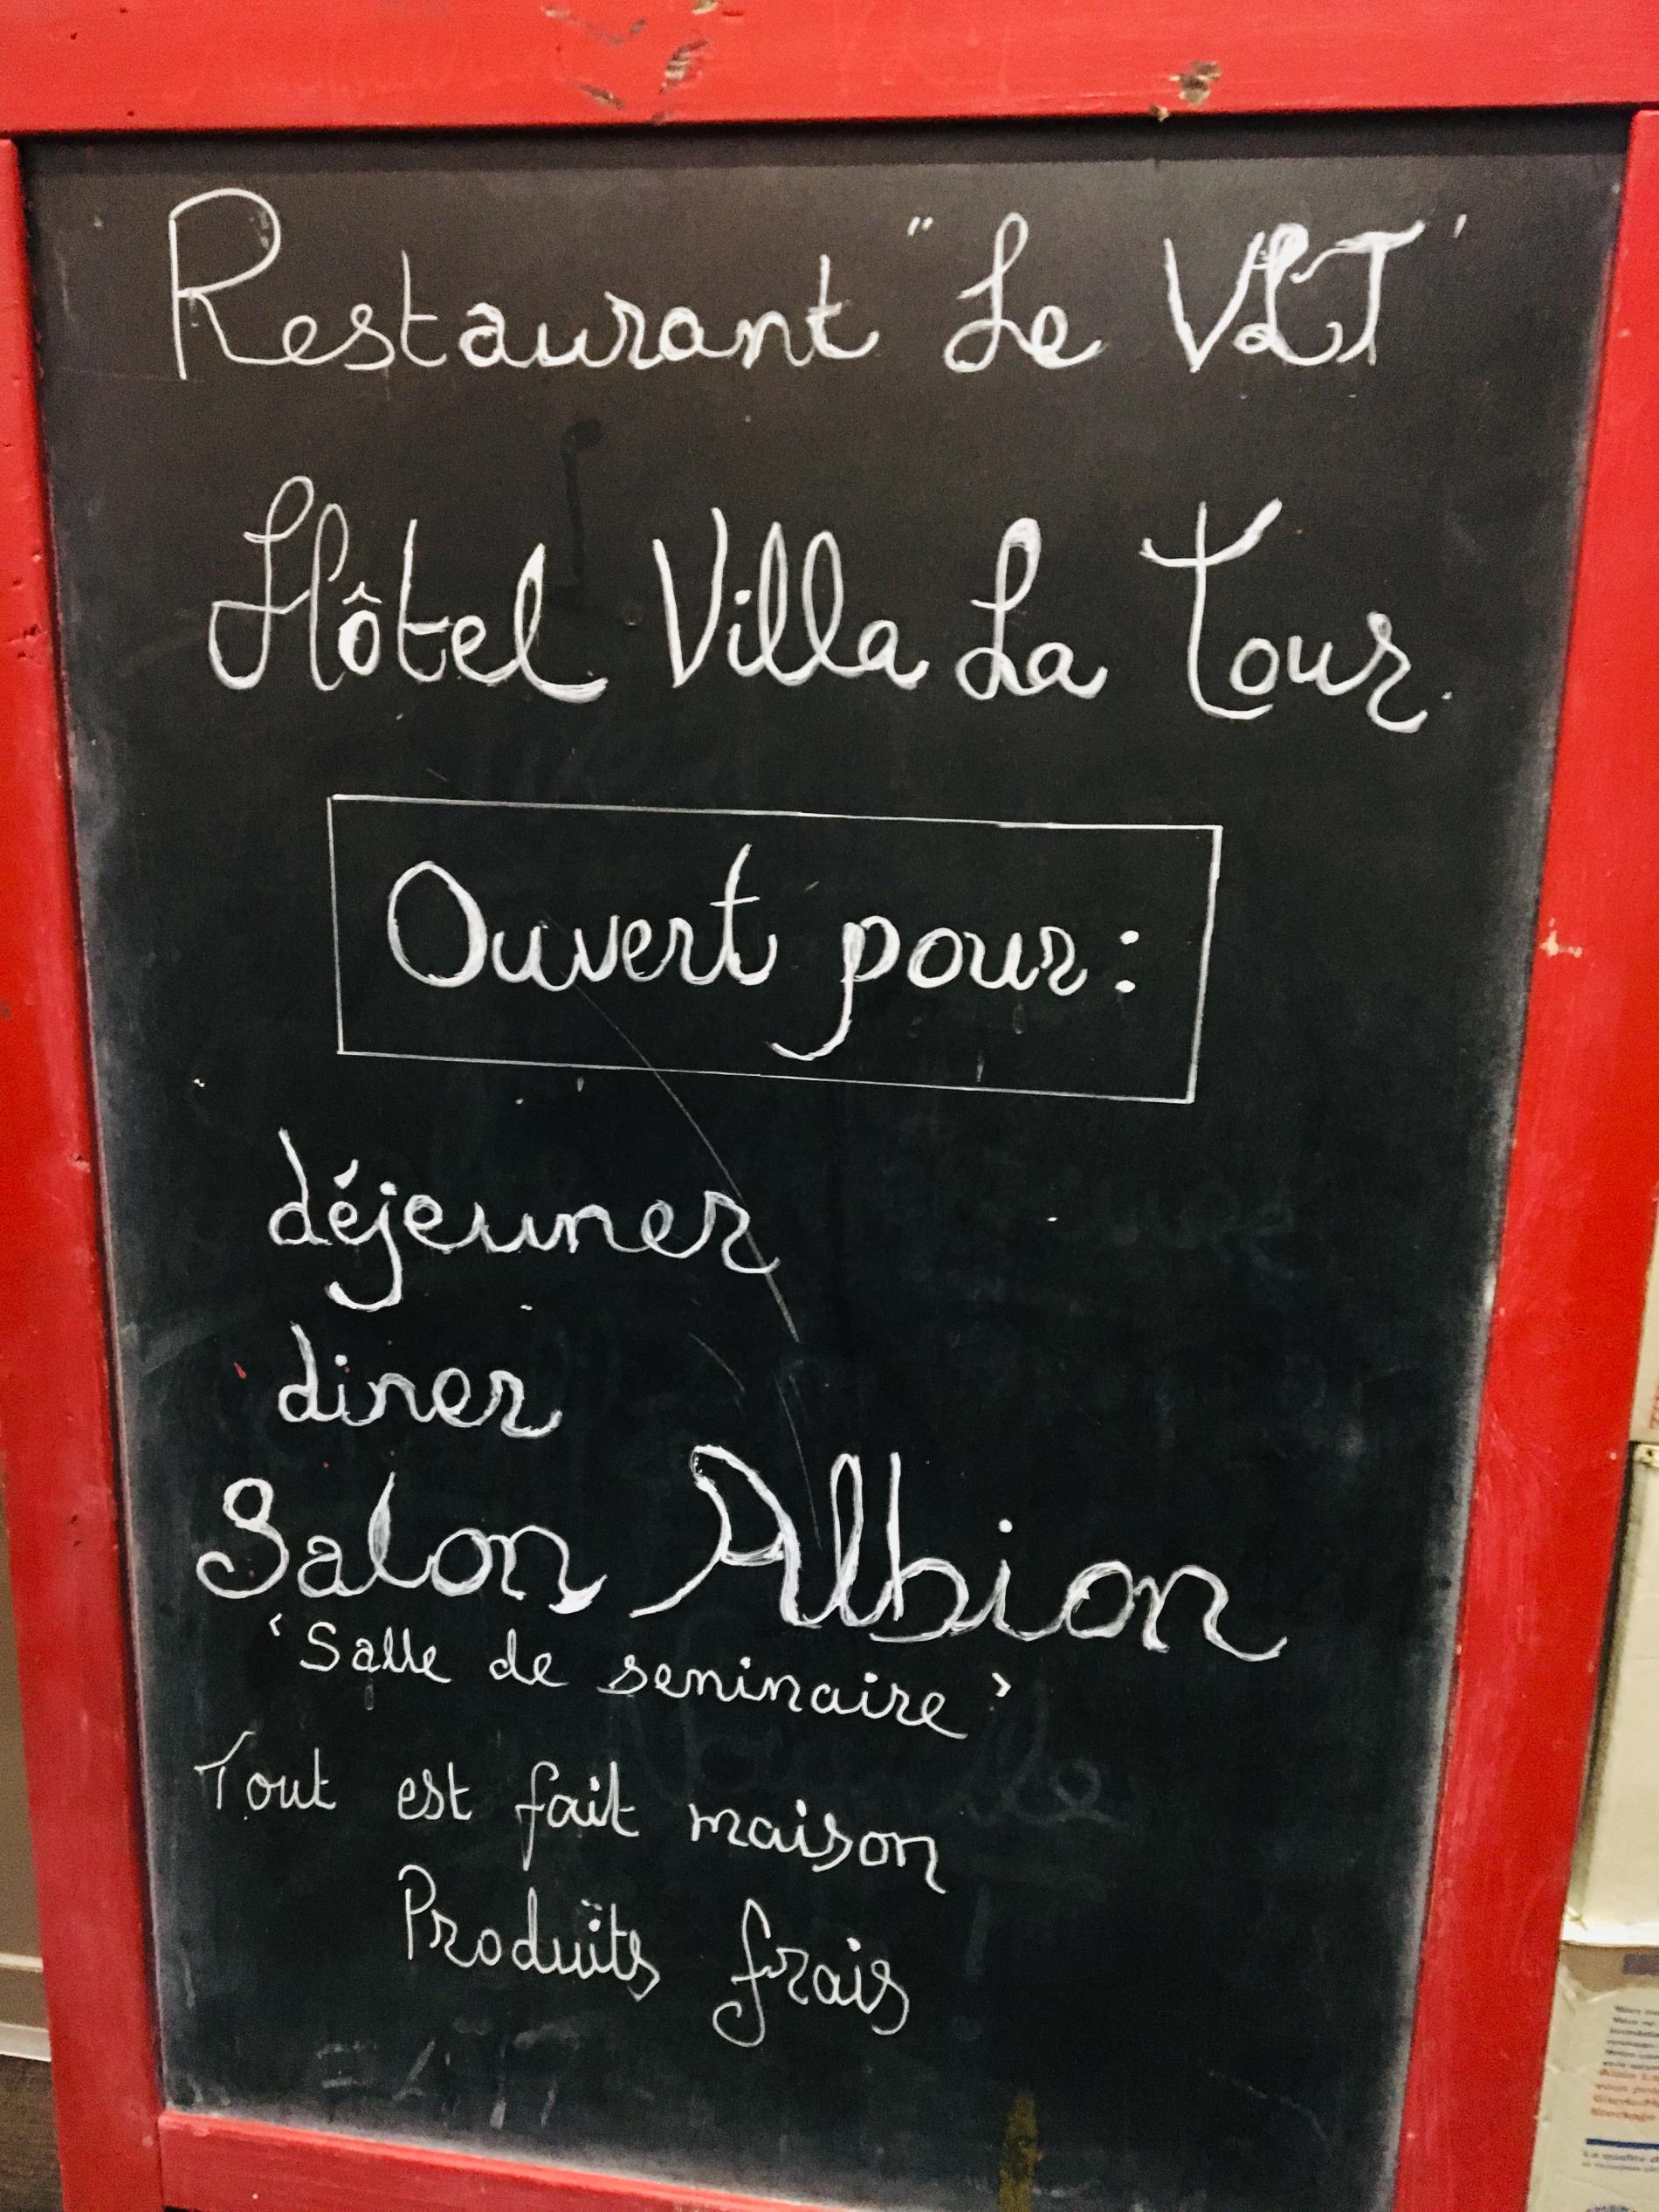 Restaurant "Le VLT"
Hôtel Villa La Tour
Ouvert pour :
déjeuner
diner
Salon Albion
"Salle de seminaire"
Tout est fait maison
Produits frais